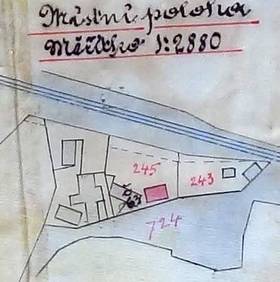 Místní poloha
Měřítko 1:2880
245
243
63
724